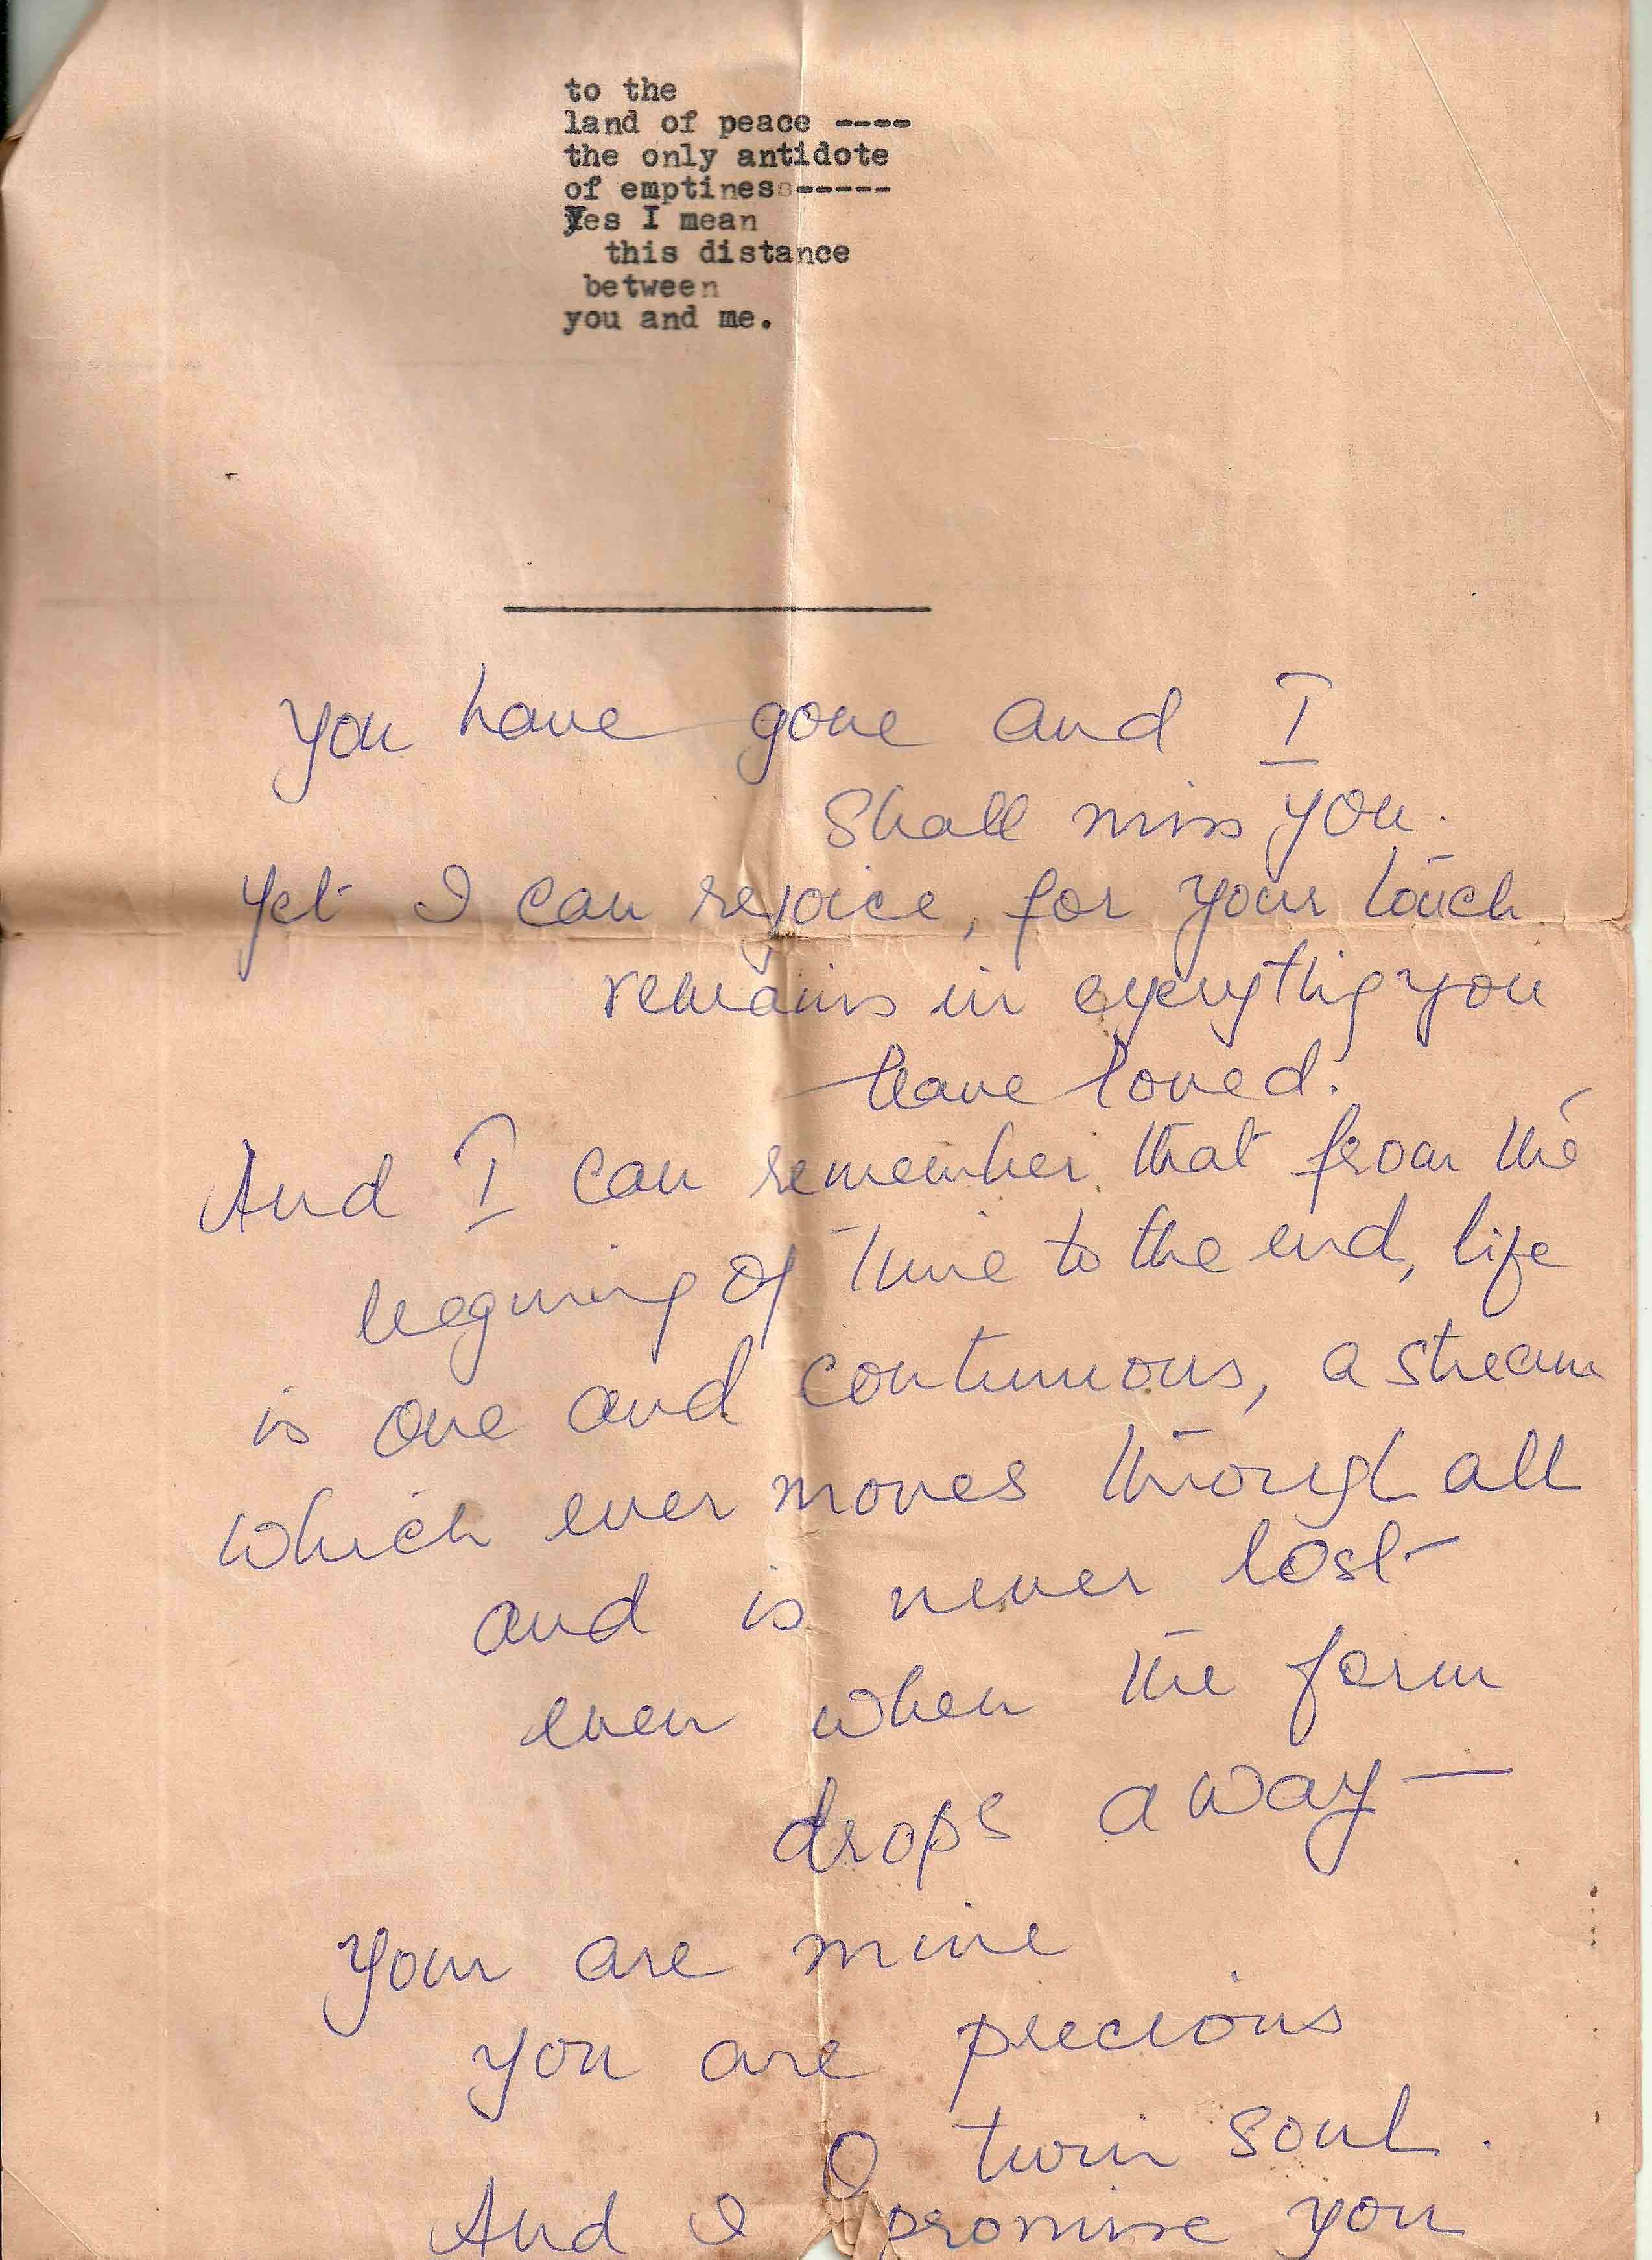 to the
land of peace ----
the only antidote
of emptiness-----
Yes I mean
this distance
between
you and me.
You have gone and I
shall miss you.
Yet I can rejoice, for your touch
remains in eyerythig you
have loved.
And I can remember that from the
begining of Time to the end, life
is one and continuous, a stream
which ever moves through all
and is never lost
even when the form
drops away —
Your are mine
you are precious
O twin soul.
And I promise you